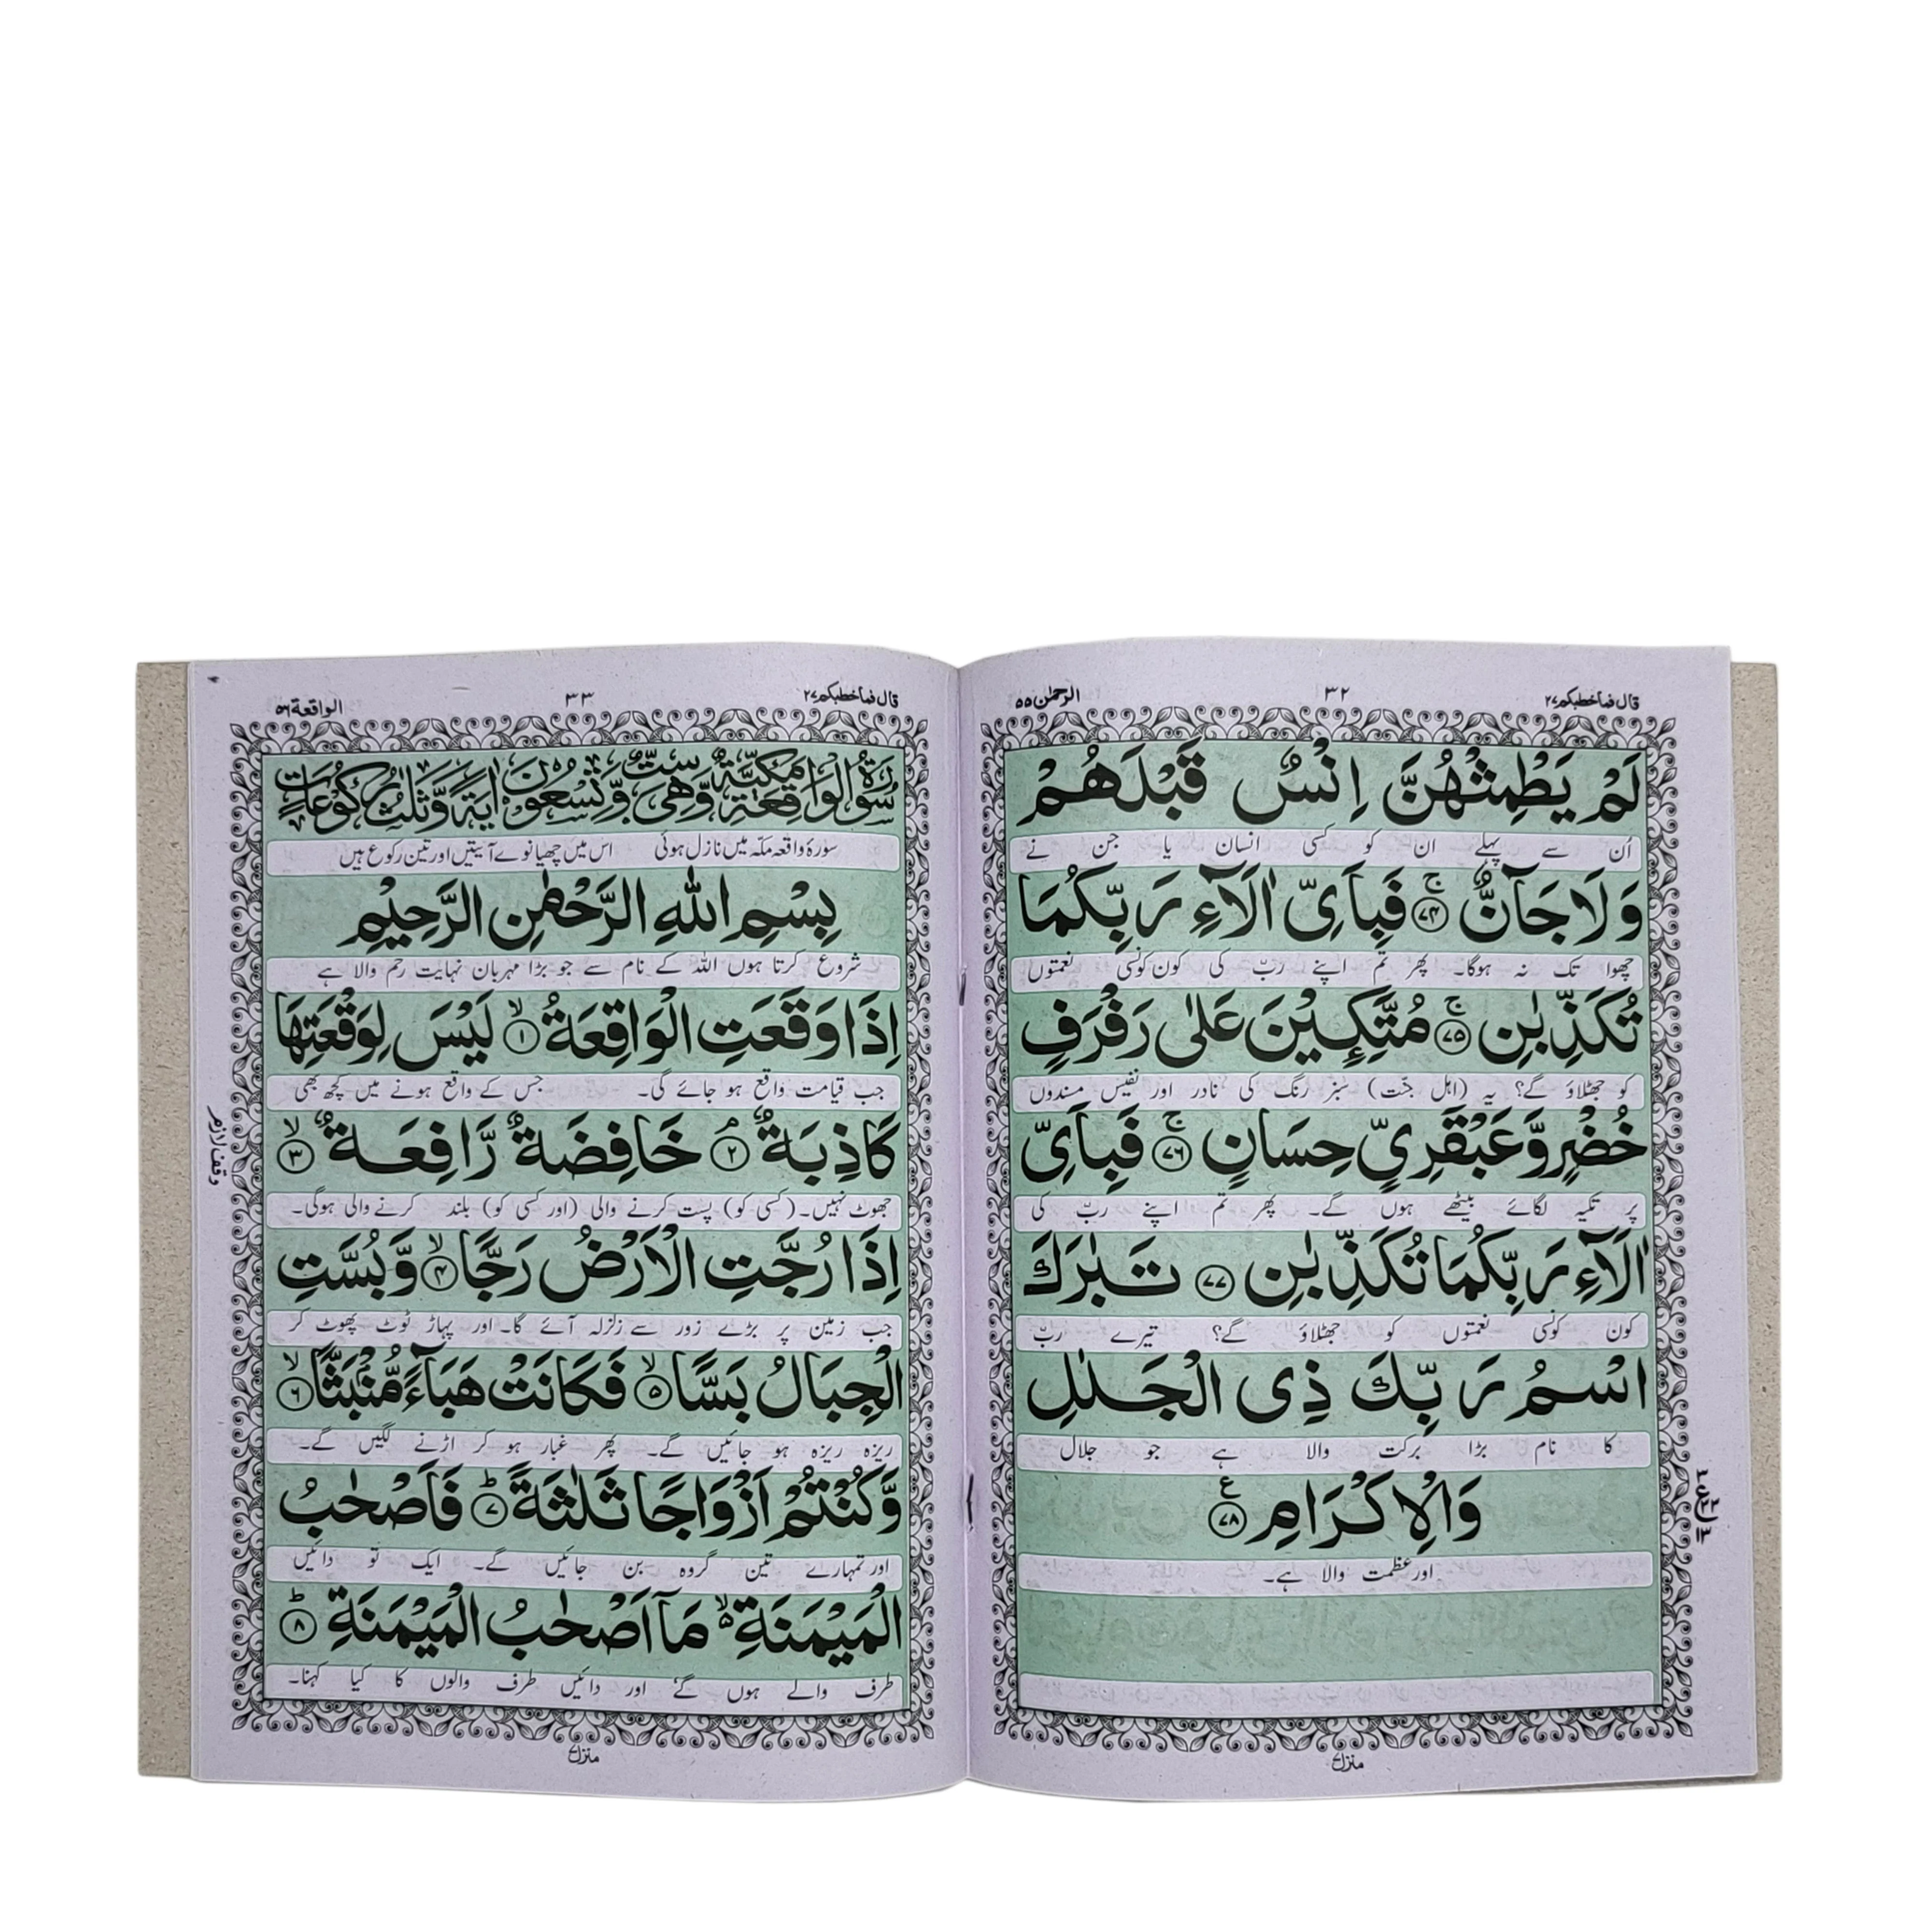 قال فماخطبکم ۲۷
۳۲
الرحمٰن ۵۵
لَمْ يَطْمِثْهُنَّ اِنْسٌ قَبْلَهُمْ
اُن سے پہلے ان کو کسی انسان یا جن نے
وَلَا جَآنٌّ ۚ ﴿۷۴﴾ فَبِاَیِّ اٰلَآءِ رَبِّكُمَا
چھوا تک نہ ہوگا۔ پھر تم اپنے ربّ کی کون کونسی نعمتوں
تُكَذِّبٰنِ ۚ ﴿۷۵﴾ مُتَّكِـِٕيْنَ عَلٰى رَفْرَفٍ
کو جھٹلاؤ گے؟ یہ (اہل جنّت) سبز رنگ کی نادر اور نفیس مسندوں
خُضْرٍ وَّعَبْقَرِیٍّ حِسَانٍ ۚ ﴿۷۶﴾ فَبِاَیِّ
پر تکیہ لگائے بیٹھے ہوں گے۔ پھر تم اپنے ربّ کی
اٰلَآءِ رَبِّكُمَا تُكَذِّبٰنِ ﴿۷۷﴾ تَبٰرَكَ
کون کونسی نعمتوں کو جھٹلاؤ گے؟ تیرے ربّ
اسْمُ رَبِّكَ ذِی الْجَلٰلِ
کا نام بڑا برکت والا ہے جو جلال
وَالْاِكْرَامِ ﴿۷۸﴾ ع
اور عظمت والا ہے۔
منزل ۷
قال فماخطبکم ۲۷
۳۳
الواقعة ۵۶
سُوْرَةُ الْوَاقِعَةِ مَكِّيَّةٌ وَّهِیَ سِتٌّ وَّتِسْعُوْنَ اٰيَةً وَّثَلٰثُ رُكُوْعَاتٍ
سورۂ واقعہ مکّہ میں نازل ہوئی اس میں چھیانوے آیتیں اور تین رکوع ہیں
بِسْمِ اللّٰهِ الرَّحْمٰنِ الرَّحِيْمِ
شروع کرتا ہوں اللہ کے نام سے جو بڑا مہربان نہایت رحم والا ہے
اِذَا وَقَعَتِ الْوَاقِعَةُ ۙ ﴿۱﴾ لَيْسَ لِوَقْعَتِهَا
جب قیامت واقع ہو جائے گی۔ جس کے واقع ہونے میں کچھ بھی
كَاذِبَةٌ ۘ ﴿۲﴾ خَافِضَةٌ رَّافِعَةٌ ۙ ﴿۳﴾
وقف لازم
جھوٹ نہیں۔ (کسی کو) پست کرنے والی (اور کسی کو) بلند کرنے والی ہوگی۔
اِذَا رُجَّتِ الْاَرْضُ رَجًّا ۙ ﴿۴﴾ وَّبُسَّتِ
جب زمین پر بڑے زور سے زلزلہ آئے گا۔ اور پہاڑ ٹوٹ پھوٹ کر
الْجِبَالُ بَسًّا ۙ ﴿۵﴾ فَكَانَتْ هَبَآءً مُّنْۢبَثًّا ۙ ﴿۶﴾
ریزہ ریزہ ہو جائیں گے۔ پھر غبار ہو کر اڑنے لگیں گے۔
وَّكُنْتُمْ اَزْوَاجًا ثَلٰثَةً ؕ ﴿۷﴾ فَاَصْحٰبُ
اور تمہارے تین گروہ بن جائیں گے۔ ایک تو دائیں
الْمَيْمَنَةِ ۙ۬ مَاۤ اَصْحٰبُ الْمَيْمَنَةِ ؕ ﴿۸﴾
طرف والے ہوں گے اور دائیں طرف والوں کا کیا کہنا۔
منزل ۷